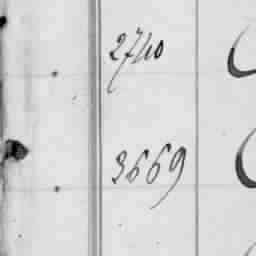 2740
3669